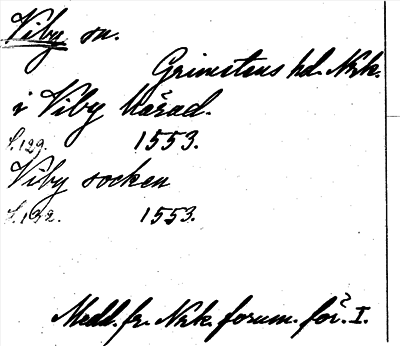 Viby sn.
Grimstens hd. Nrk.
i Viby härad.
s. 129. 1553.
Viby socken
s. 132. 1553.
Medd. fr. Nrk. fornm. för. I.